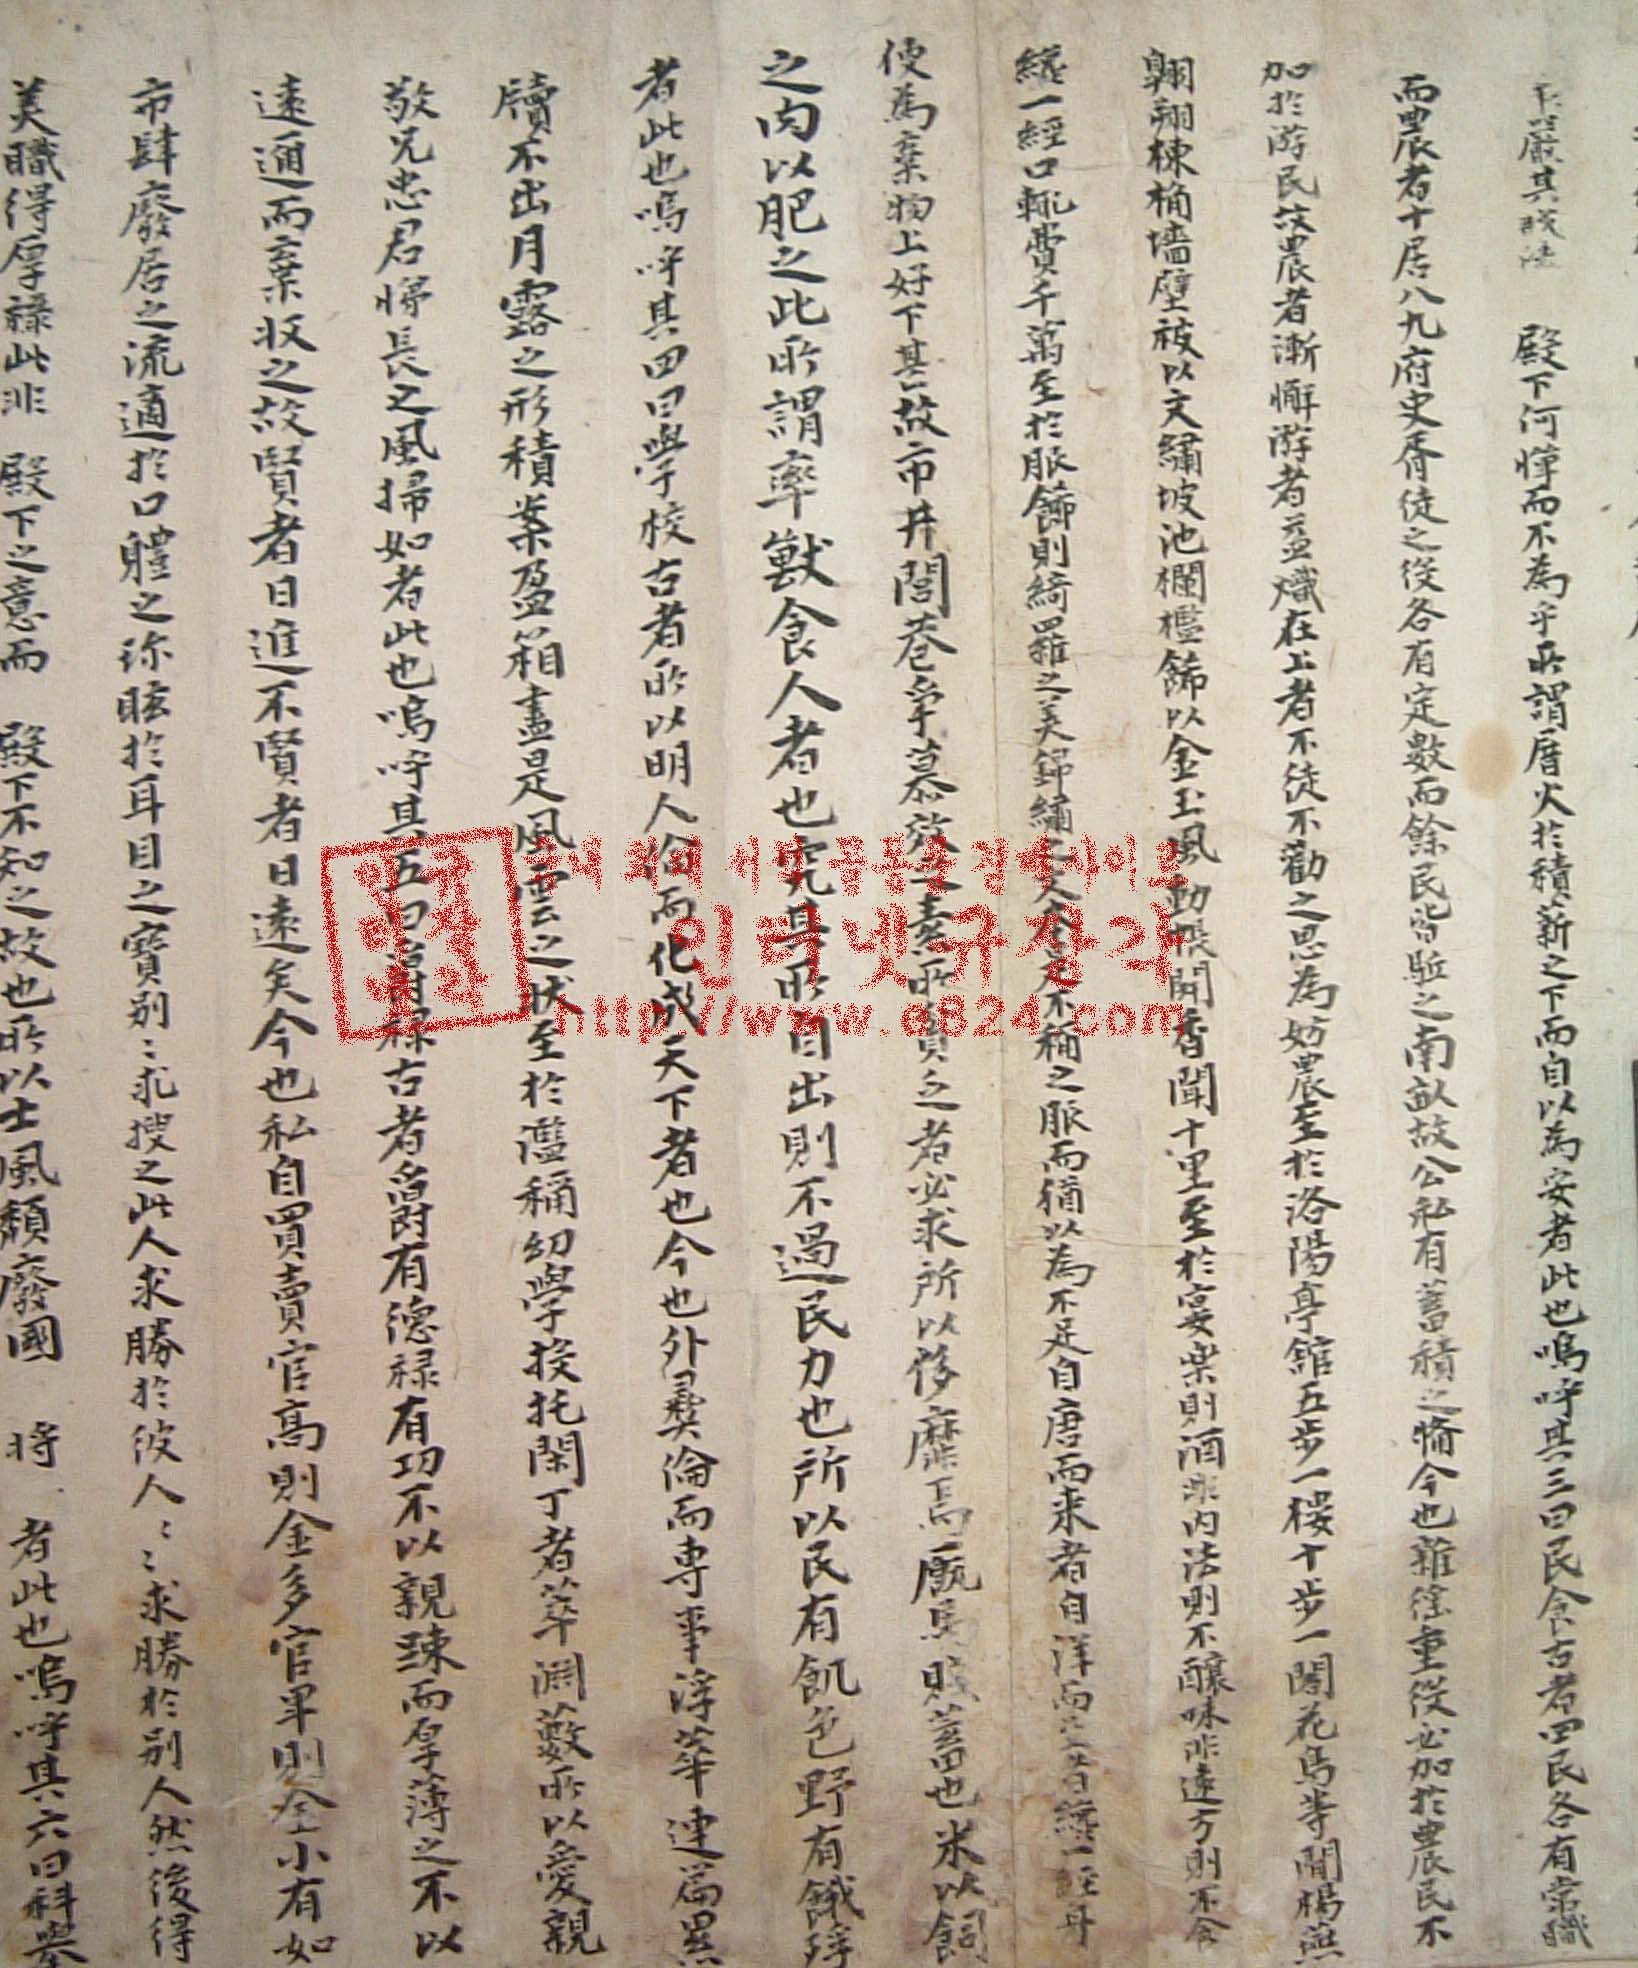 嚴其 殿下何憚而不為乎所謂厝火於積薪之下而自以為安者此也嗚呼其三曰民食古者四民各有常職
而農者十居八九府史胥徒之役各有定數而餘民皆駈之南畝故公私有蓄積之備今也雜徭重役必加於農民不
加於游民故農者漸懈游者益熾在上者不徒不勸之思為妨農至於洛陽亭館五步一樓十步一閣花鳥等閒楊燕
翺翔棟桷墻壁被以文繡坡池欄檻餙以金玉風動帳開香聞十里至於宴樂則酒非內法則不釀味非遠方則不食
纔一經口輒費千萬至於服飾則綺羅之美錦繡之文不稱之服而猶以為不足自唐而來者自洋而纔一經身
便為棄物上好下甚故市井閭巷爭慕效之素所貧乏者必求所以侈靡焉廐馬賤畜也米以飼
之肉以肥之此所謂率獸食人者也究其所自出則不過民力也所以民有飢色野有餓殍
者此也嗚呼其四曰學校古者所以明人倫而化成天下者也今也外彛倫而專事浮華連篇累
牘不出月露之形積案盈箱盡是風雲之狀至於濫稱幼學投托閑丁者萃淵藪所以愛親
敬兄忠君悌長之風掃如者此也嗚呼其五曰爵祿古者爵有德祿有功不以親踈而厚薄之不以
遠通而棄收之故賢者日進不賢者日遠矣今也私自買賣官高則金多官卑則金小有如
市肆廢居之流適於口軆之珎眩於耳目之寶別〻求搜之此人求勝於彼人〻〻求勝於別人然後得
美職得厚祿此非 殿下之意而 殿下不知之故也所以士風頹廢國 將 者此也嗚呼其六曰科擧
국내 최대 서당 공동을 경매사이트
인터넷규장각
http://www.e824.com